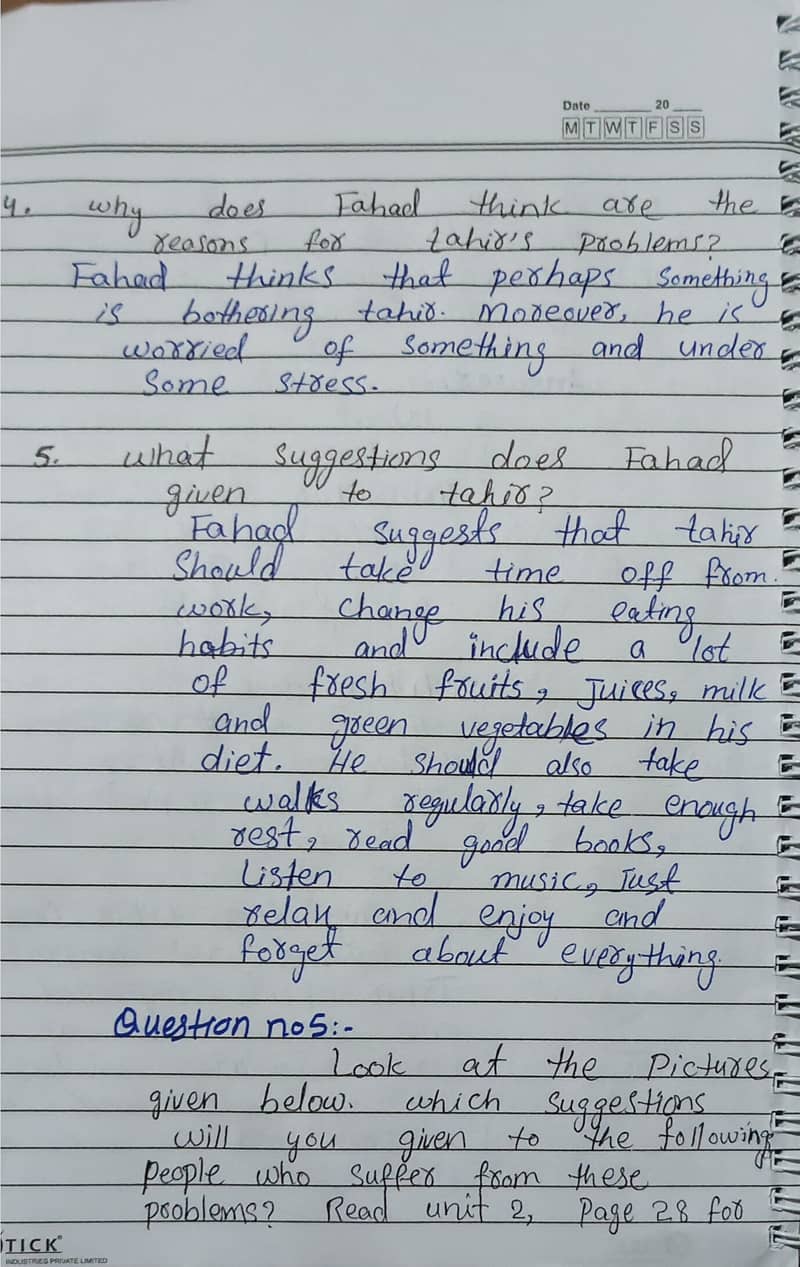 Date ______ 20 ___
M T W T F S S
4. why does Fahad think are the
reasons for tahir's problems?
Fahad thinks that perhaps something
is bothering tahir. Moreover, he is
worried of something and under
some stress.
5. what suggestions does Fahad
given to tahir?
Fahad suggests that tahir
should take time off from
work, change his eating
habits and include a lot
of fresh fruits, juices, milk
and green vegetables in his
diet. He should also take
walks regularly, take enough
rest, read good books,
Listen to music, Just
relax and enjoy and
forget about everything.
Question no5:-
Look at the Pictures
given below. which suggestions
will you given to the following
people who suffer from these
problems? Read unit 2, Page 28 for
TICK
INDUSTRIES PRIVATE LIMITED